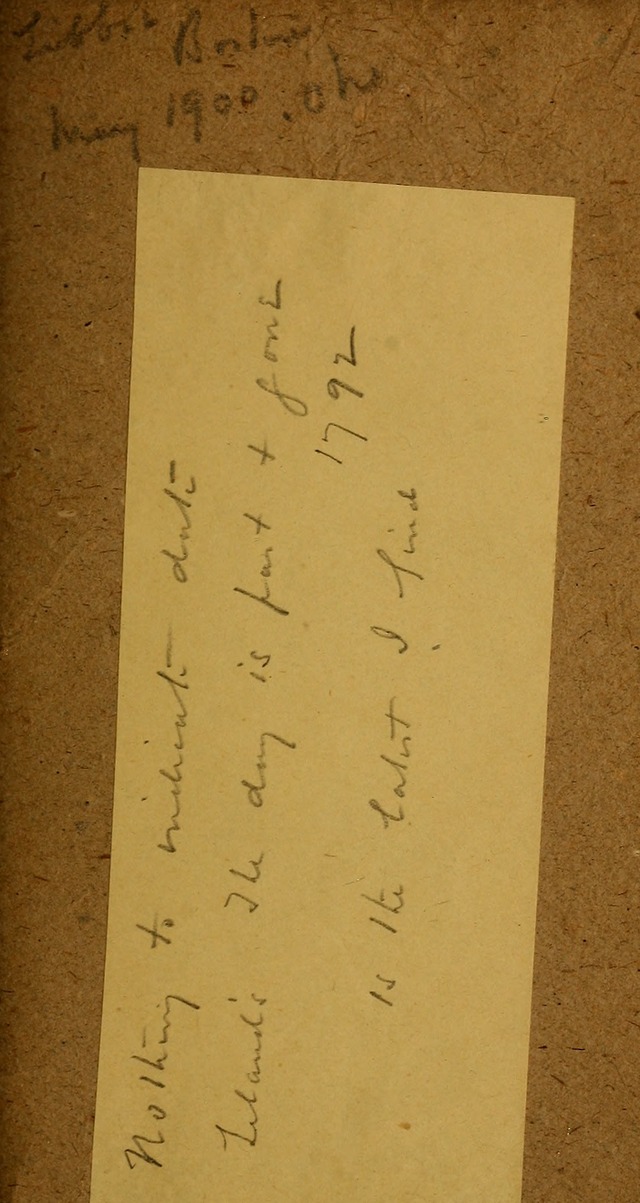 Libbie Boston
May 1900
Nothing to indicate date
Leland's The day is past + gone
1792
is the latest I find